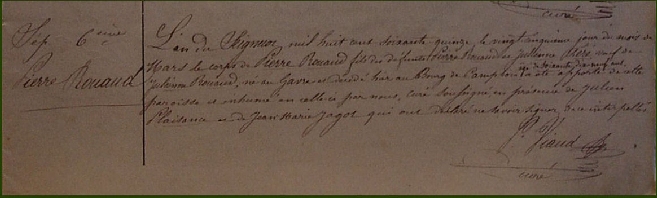 curé
Sép. 6ème
Pierre Rouaud
L'an du Seigneur mil huit cent soixante-quinze, le vingt cinquième jour du mois de
Mars le corps de Pierre Rouaud fils des défunts Pierre Rouaud et Julienne veuf de
Julienne Rouaud, né au Gavre et décédé hier au bourg de a été apporté de cette
paroisse et inhumé en celle-ci par nous, curé soussigné en présence de Julien
Plaisance et de Jean Marie Jagot qui ont déclaré ne savoir signer, de ce interpellés
Viaud
curé